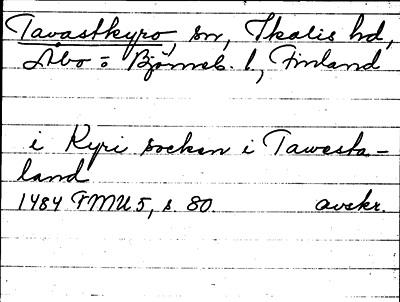 Tavastkyro, sn, Ikalis hd,
Åbo = Björneb. l, Finland
i Kyri socken i Tawesta-
land
1484 FMU 5, s. 80. avskr.